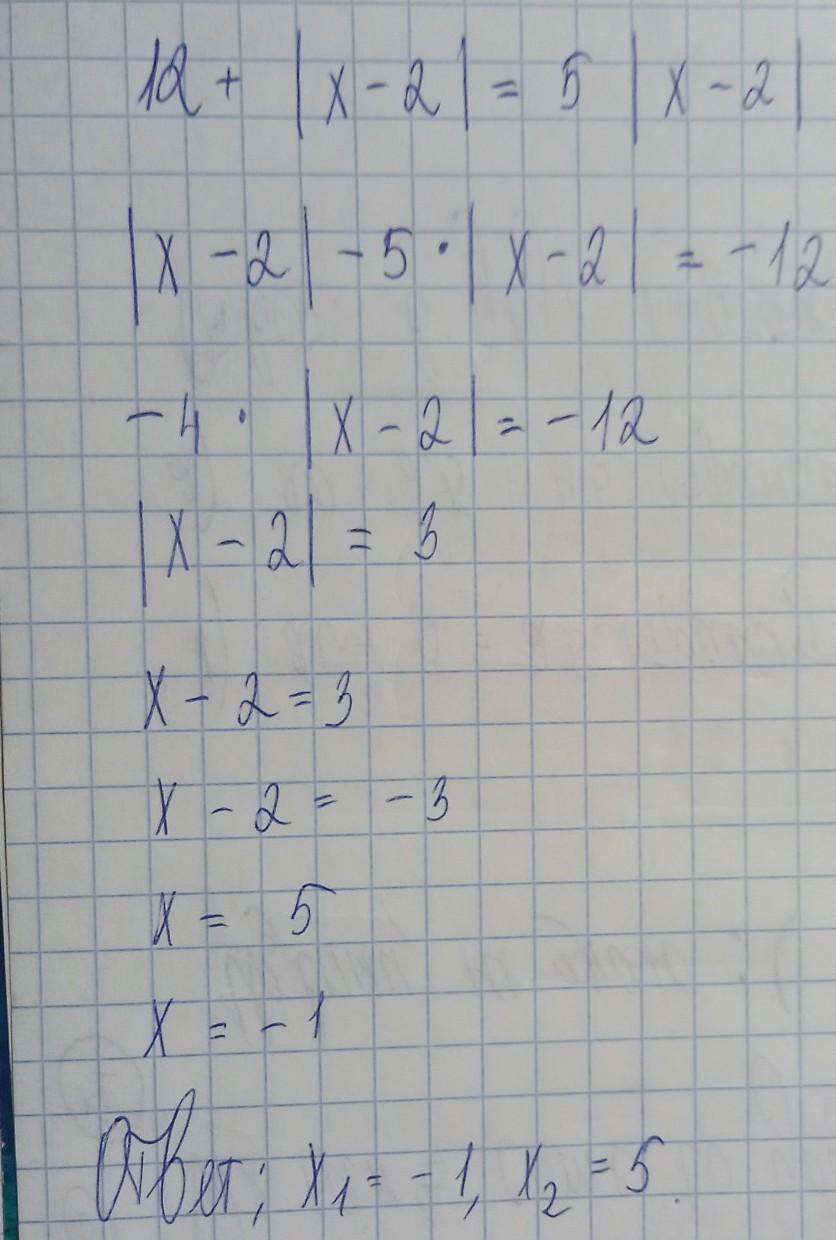 12 + |x - 2| = 5 |x - 2|
|x - 2| - 5 · |x - 2| = -12
-4 · |x - 2| = -12
|x - 2| = 3
x - 2 = 3
x - 2 = -3
x = 5
x = -1
Ответ: x₁ = -1, x₂ = 5.